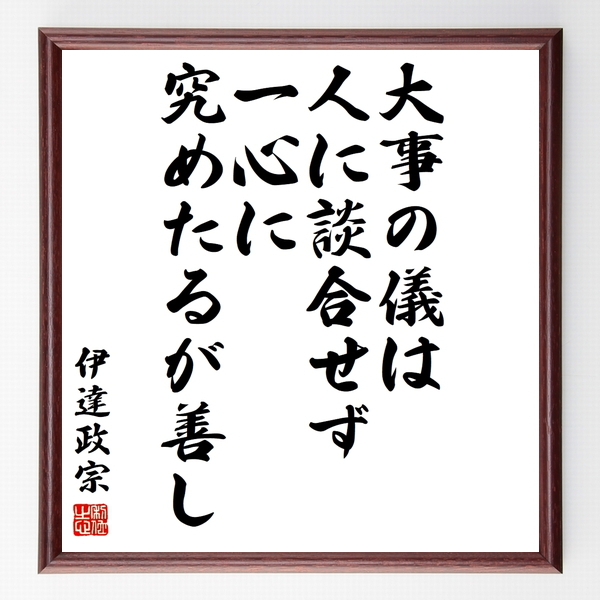 大事の儀は
人に談合せず
一心に
究めたるが善し
伊達政宗